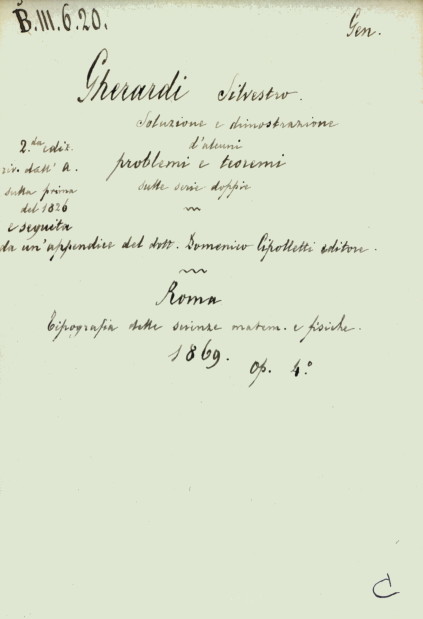 B.III.6.20.
Gen.
Gherardi Silvestro.
Soluzione e dimostrazione
d'alcuni
problemi e teoremi
sulle serie doppie
2.da ediz.
riv. dall' A.
sulla prima
del 1826
e seguita
da un'appendice del dott. Domenico Cipolletti editore.
Roma
Tipografia delle scienze matem. e fisiche.
1869.
Op. 4.°
C